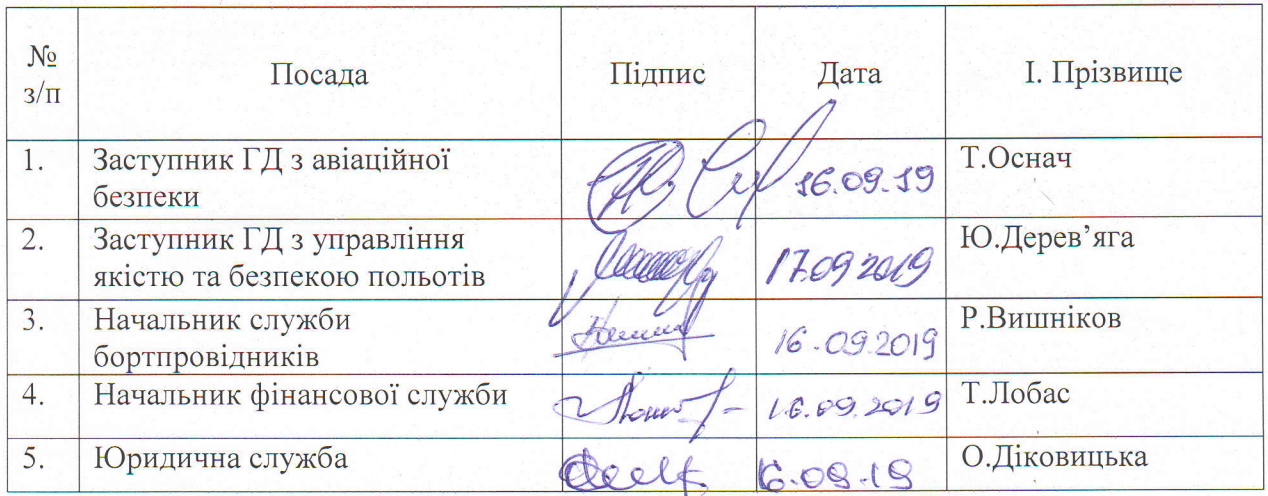 № з/п Посада Підпис Дата І. Прізвище
1. Заступник ГД з авіаційної безпеки 16.09.19 Т.Оснач
2. Заступник ГД з управління якістю та безпекою польотів 17.09 2019 Ю.Дерев’яга
3. Начальник служби бортпровідників 16.09.2019 Р.Вишніков
4. Начальник фінансової служби 16.09.2019 Т.Лобас
5. Юридична служба 16.09.19 О.Діковицька